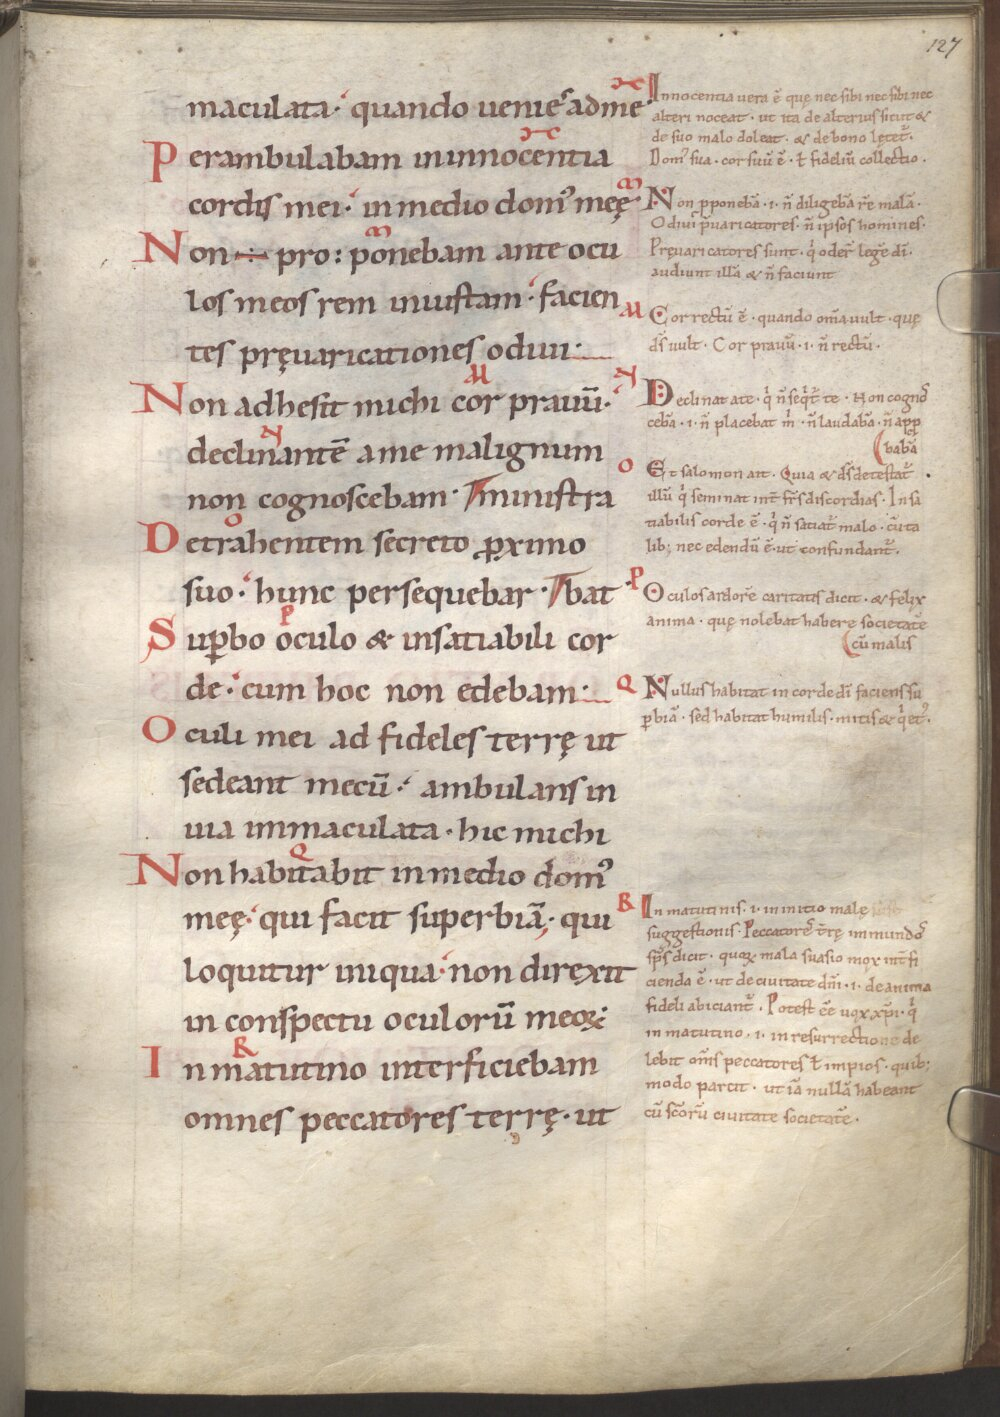 127
maculata · quando venies ad me ·
Perambulabam in innocentia
cordis mei · in medio dom᾽ meę
Non ÷ pro : ponebam ante ocu
los meos rem iniustam · facien
tes pręuaricationes odiui ·
Non adhesit michi cor prauū ·
declinantē a me malignum
non cognoscebam · ministra
Detrahentem secreto ꝓximo
suo · hunc persequebar · bat
Suꝑbo oculo & insatiabili cor
de · cum hoc non edebam ·
Oculi mei ad fideles terrę ut
sedeant mecū · ambulans in
uia immaculata · hic michi
Non habitabit in medio dom᾽
meę · qui facit superbiā ; qui
loquitur iniqua · non direxit
in conspectu oculorū meoꝝ ·
In matutino interficiebam
omnes peccatores terrę · ut
Innocentia uera ē quę nec sibi nec sibi nec
alteri noceat · ut ita de alterius sicut &
de suo malo doleat · & de bono lętet᷑ ·
Dom᾽ sua · cor suū ē · ł fideliū collectio ·
m Non ꝓponebā · i · ñ diligebā rē malā ·
Odiui p̄uaricatores · ñ ipsos homines ·
Pręuaricatores sunt · q̍ oder̄ legē dī ·
audiunt illā & ñ faciunt
M Cor rectū ē · quando om̄a uult · quę
d̄s uult · Cor prauū · i · ñ rectū ·
N Declinat a te · q̍ ñ seq̍t᷑ te · Non cogno
cebā · i · ñ placebat m̍ · ñ laudabā · ñ app
babā
O Et salomon ait · Quia & d̄s detestat᷑
illū q̍ seminat int̄ fr̄s discordias · Insa
tiabilis corde ē · q̍ ñ satiat᷑ malo · cū ta
lib; nec edendū ē · ut confundant᷑ ·
P Oculos ardore caritatis dicit · & felix
anima · quę nolebat habere societatē
cū malis
Q Nullus habitat in corde dī faciens su
ꝑbiā · sed habitat humilis · mitis & q̍et᾽ ·
R In matutinis · i · in initio malę
suggestionis · Peccatores t̄rę inmundos
sp̄s dicit · quoꝝ mala suasio mox int̄fi
cienda ē · ut de ciuitate dn̄i · i · de anima
fideli abiciant᷑ · Potest ēe uox xp̄i · q̍
in matutino · i · in resurrectione de
lebit om̄s peccatores ł impios · quib;
modo parcit · ut iā nullā habeant
cū sc̄orū ciuitate societatē ·